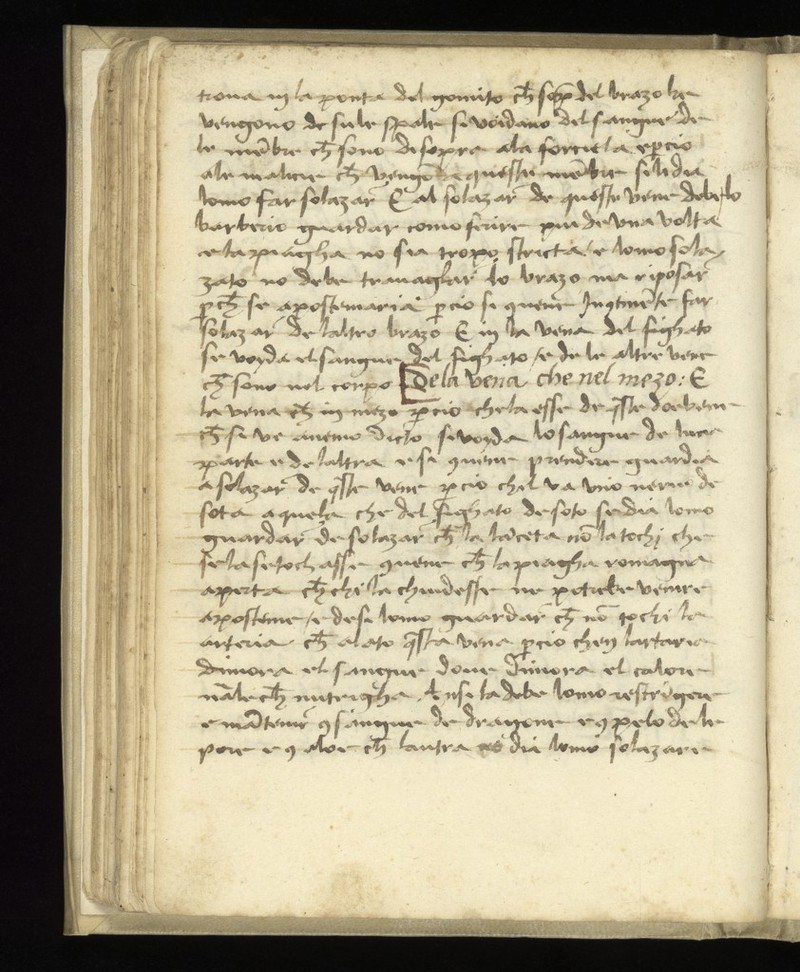 trova in la ponta del gomito ch̄ sop̄ del brazo he
vengono de su le spale si voidano del sangue de
le mēbre ch̄ sono di sopra a la forciela e p̄cio
a le malicie ch̄ vengono a queste mēbre se li dia
lomo far solazar E al solazar de queste vene debe lo
barberio guardar como ferire piu de vna volta
e la piagha no sia tropo stricta / e lomo sola
zato no debe travagliar lo brazo ma riposar
p̄ch̄ se apostemaria p̄cio si quene far
solazar de laltro brazo E in la vena del fighato
se voyda el sangue del fighato / e de le altre vene
ch̄ sono nel corpo De la vena che nel mezo : E
la vena ch̄ in mezo p̄cio che la esse de q̄ste doe vene
ch̄ si ve avemo dicto si voyda lo sangue de luna
parte e de laltra e si 9vene prendere guardia
a solazar de q̄ste vene p̄cio chel va vno nervo de
sota a quela che del fighato de soto se dia lomo
guardar de solazar ch̄ la lāceta nō la tochi che
se la se tochasse 9vene ch̄ la piagha romagna
aperta ch̄ chi la chiudesse ne potrebe venire
aposteme / e de si lomo guardar ch̄ nō tochi la
arteria ch̄ a lato q̄sta vena p̄cio che in lartaria
dimora el sangue dove dimora el calore
nāle ch̄ nutrigha. Ansi la debe lomo restrigere
e māteīr 9 sangue de dragone e 9 pelo de le
pore e 9 aloe ch̄ lautra dia lomo solazare